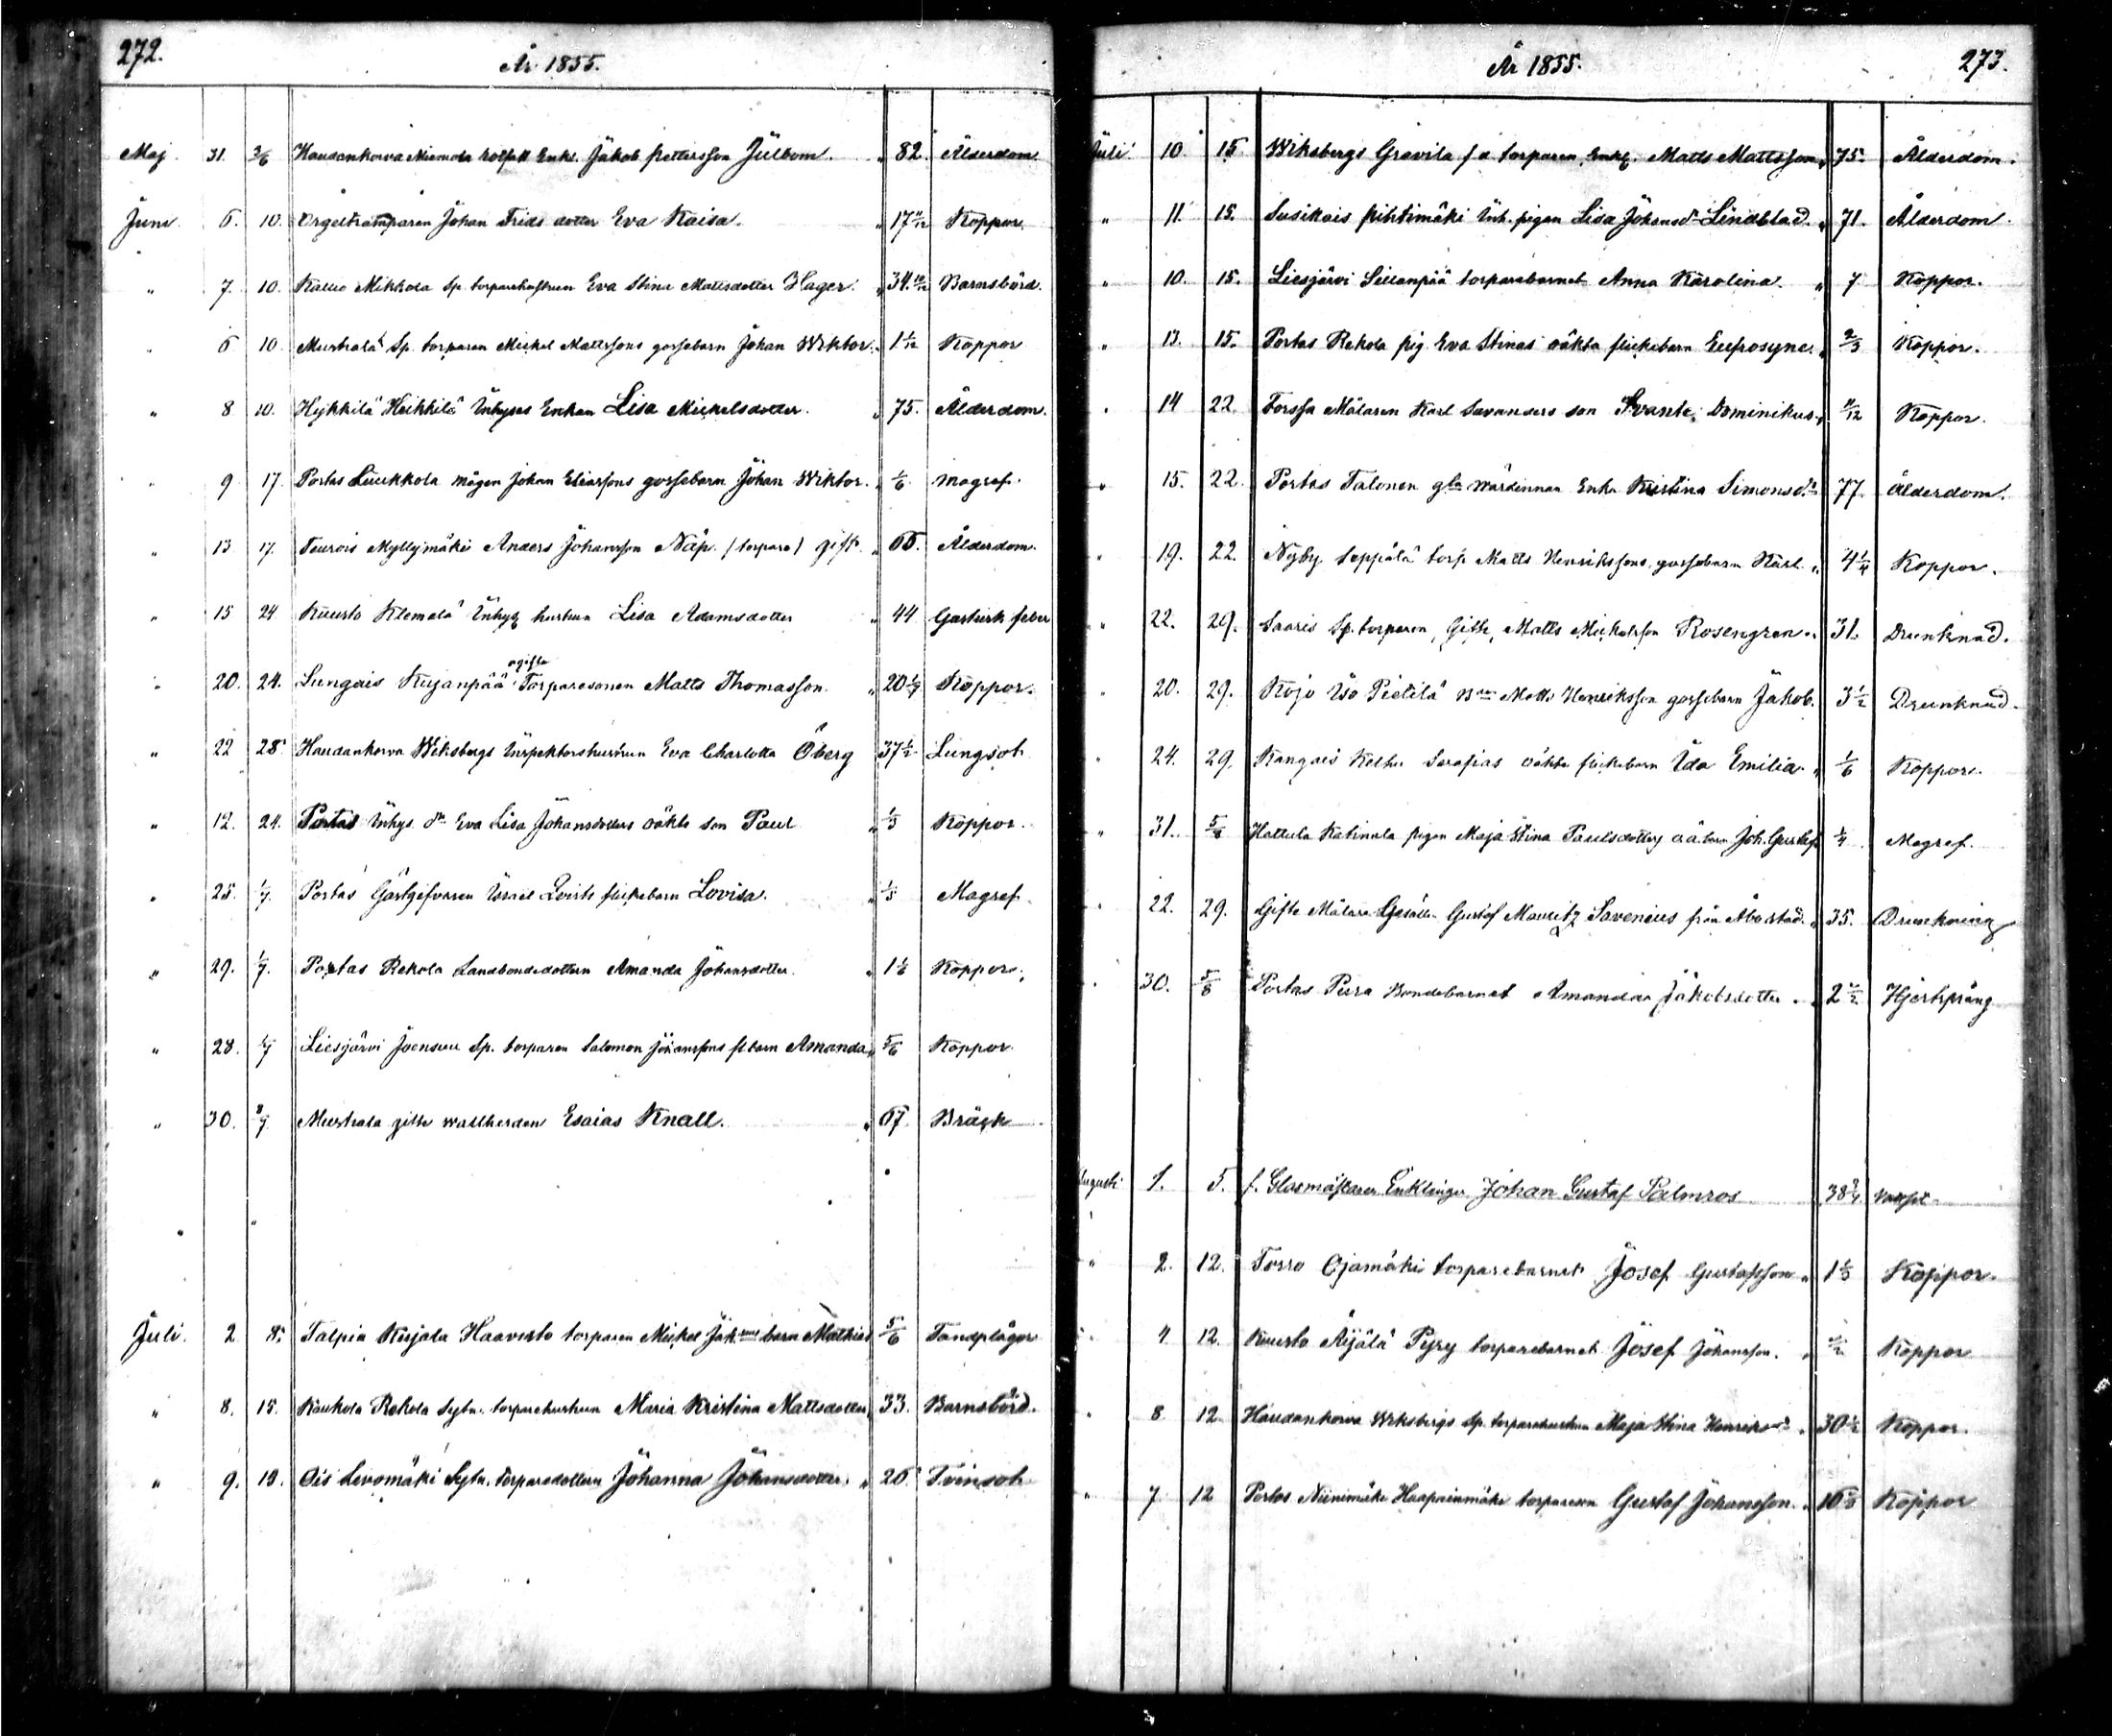 272.
År 1855.
Maj. 31. 3/6 Haudankorva Niemola Enkl. Jakob Pettersson Julbom. " 82. Ålderdom
Juni 6. 10. Orgeltramparen Johan Frids dotter Eva Kaisa. " 17 11/12 Koppor.
" 7. 10. Kallio Mikkola Sp. torparehustrun Eva Stina Mattsdotter Hager. " 34. 10/12 Barnsbörd.
" 6 10. Murhala Sp. torparen Mickel Mattssons gossebarn Johan Wiktor. " 1 1/12 Koppor
" 8 10. Hykkilä Heikkilä Inhyses Enkan Lisa Mickelsdotter. " 75. Ålderdom.
" 9 17. Portas Luukkola mågen Johan Eliassons gossebarn Johan Wiktor. " 1/6 Magref.
" 13 17. Teurois Myllymäki Anders Johansson Näp. (torpare) gift. " 66. Ålderdom.
" 15 24 Kuusto Klemelä Inhys hustrun Lisa Adamsdotter " 44 Gastrisk feber
" 20. 24. Lungois Kujanpää ogifte Torparesonen Matts Thomasson. " 20 1/4 Koppor.
" 22 28. Haudankorva Wiksbergs Inspektorshustrun Eva Charlotta Öberg 37 1/2 Lungsot
" 12. 24. Portas Inhys. Eva Lisa Johansdotters oäkta son Paul " 1/3 Koppor.
" 25. 1/7. Portas Gästgifvaren Israel Qvists flickebarn Lovisa. " 1/3 Magref.
" 29. 1/7. Portas Rekola Landbondedottern Amanda Johansdotter. " 1 1/2 Koppor.
" 28. 1/7 Liesjärvi Joensuu Sp. torparen Salomon Johanssons fl.barn Amanda " 5/6 Koppor.
" 30. 8/7 Murhala gifte vallherden Esaias Knall. " 67. Bråck
Juli. 2 8. Talpia Kujala Haavisto torparen Mickel barn Mathias 5/6 Tandplågor
" 8. 15. Kaukola Rekola Sytn. torparehustrun Maria Kristina Mattsdotter 33. Barnsbörd.
" 9. 15. Ois Levomäki Sytn. torparedottern Johanna Johansdotter. " 26 Tvinsot
År 1855.
273.
Juli 10. 15 Wiksbergs Gravila f.d. torparen, Enkl. Matts Mattsson " 75. Ålderdom.
" 11. 15. Susikais Pihtimäki Inh. pigan Lisa Johansd:r Lindblad. " 71. Ålderdom.
" 10. 15. Liesjärvi Sillanpää torparebarnet Anna Karolina. " 7 Koppor.
" 13. 15. Portas Rekola pig. Eva Stinas oäkta flickebarn Eufrosyne. " 2/3 Koppor.
" 14 22. Forssa Målaren Karl Savanders son Svante Dominikus. " 11/12 Koppor.
" 15. 22. Portas Talonen gla Wärdinnan Enka Kristina Simonsd:r 77. Ålderdom.
" 19. 22. Nyby Seppälä torp. Matts Henrikssons gossebarn Karl " 4 1/4 Koppor.
" 22. 29. Saaris Sp. torparen, Gifte, Matts Mickelsson Rosengren " 31. Drunknad.
" 20. 29. Kojo Iso Pietilä Matts Henriksson gossebarn Jakob. 3 1/2 Drunknad.
" 24. 29. Kangais Serafias oäkta flickebarn Ida Emilia. " 1/6 Koppor.
" 31. 5/8 Hattula Katinala pigan Maja Stina Paulsdotters oä. barn Joh. Gustaf 1/4 Magref.
" 22. 29. Gifte Målare Gesällen Gustaf Mauritz Savenius från Åbo stad. " 35. Drunkning
" 30. 5/8 Portas Perra Bondebarnet Amanda Jakobsdotter. " 2 1/2 Hjertsprång
Augusti 1. 5. f. Glasmästaren Enklingen Johan Gustaf Palmros 38 3/4
" 2. 12. Torro Ojamäki torparebarnet Josef Gustafsson " 1 1/3 Koppor.
" 4. 12. Kuusto Äijälä Pyry torparebarnet Josef Johansson. " 1/2 Koppor
" 8. 12 Haudankorva Wiksbergs Sp. torparehustrun Maja Stina Henriksd:r " 30 1/2 Koppor.
" 7 12 Portas Niinimäki Haapainmäki torparen Gustaf Johansson. " Koppor